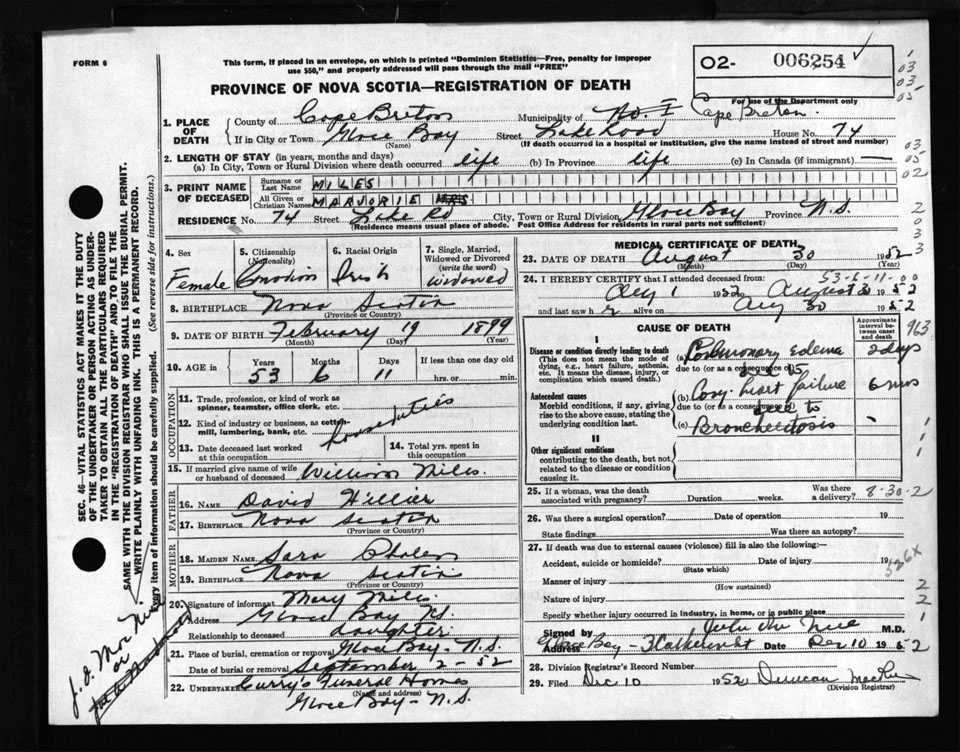 FORM 6
This form, if placed in an envelope, on which is printed "Dominion Statistics—Free, penalty for improper
use $50," and properly addressed will pass through the mail "FREE"
O2- 006254
For use of the Department only
PROVINCE OF NOVA SCOTIA—REGISTRATION OF DEATH
1. PLACE OF DEATH
County of Cape Breton Municipality of No. I Cape Breton
If in City or Town Glace Bay Street Lake Road House No. 74
(Name) (If death occurred in a hospital or institution, give the name instead of street and number)
2. LENGTH OF STAY (in years, months and days)
(a) In City, Town or Rural Division where death occurred life (b) In Province life (c) In Canada (if immigrant) —
3. PRINT NAME OF DECEASED
Surname or Last Name MILES
All Given or Christian Names MARJORIE MRS.
RESIDENCE No. 74 Street Lake Rd City, Town or Rural Division Glace Bay Province N.S.
(Residence means usual place of abode. Post Office Address for residents in rural parts not sufficient)
4. Sex Female
5. Citizenship (Nationality) Canadian
6. Racial Origin Irish
7. Single, Married, Widowed or Divorced (write the word) widowed
8. BIRTHPLACE Nova Scotia
(Province or Country)
9. DATE OF BIRTH February 19 1899
(Month) (Day) (Year)
10. AGE in Years 53 Months 6 Days 11 If less than one day old hrs. or min.
OCCUPATION
11. Trade, profession, or kind of work as spinner, teamster, office clerk, etc.
12. Kind of industry or business, as cotton-mill, lumbering, bank, etc.
household duties
13. Date deceased last worked at this occupation
14. Total yrs. spent in this occupation
15. If married give name of wife or husband of deceased William Miles.
FATHER
16. NAME David Hillier
17. BIRTHPLACE Nova Scotia
(Province or Country)
MOTHER
18. MAIDEN NAME Sara
19. BIRTHPLACE Nova Scotia
(Province or Country)
20. Signature of informant Mary Miles
Address Glace Bay N.S.
Relationship to deceased daughter
21. Place of burial, cremation or removal Glace Bay - N.S.
Date of burial or removal September 2-52
22. UNDERTAKER Curry's Funeral Homes
(Name and address)
Glace Bay - N.S.
MEDICAL CERTIFICATE OF DEATH
23. DATE OF DEATH August 30 1952
(Month) (Day) (Year)
53-6-11-00
24. I HEREBY CERTIFY that I attended deceased from:
Aug 1 1952 August 30 1952
and last saw h alive on Aug 30 1952
CAUSE OF DEATH
Approximate interval between onset and death
I
Disease or condition directly leading to death
(This does not mean the mode of dying, e.g., heart failure, asthenia, etc. It means the disease, injury, or complication which caused death.)
(a) Pulmonary edema 2 days
due to (or as a consequence of)
Antecedent causes
Morbid conditions, if any, giving rise to the above cause, stating the underlying condition last.
(b) Cong. heart failure 6 mos
due to (or as a consequence of)
(c) Bronchiectosis
II
Other significant conditions
contributing to the death, but not related to the disease or condition causing it.
25. If a woman, was the death associated with pregnancy? Duration weeks. Was there a delivery?
8-30-2
26. Was there a surgical operation? Date of operation 19
State findings Was there an autopsy?
27. If death was due to external causes (violence) fill in also the following:—
Accident, suicide or homicide? Date of injury 19
(State which)
Manner of injury
(How sustained)
Nature of injury
Specify whether injury occurred in industry, in home, or in public place
Signed by M.D.
Address Glace Bay Date Dec 10 1952
28. Division Registrar's Record Number
29. Filed Dec 10 1952 Duncan
(Division Registrar)
963
526X
SEC. 46—VITAL STATISTICS ACT MAKES IT THE DUTY
OF THE UNDERTAKER OR PERSON ACTING AS UNDER-
TAKER TO OBTAIN ALL THE PARTICULARS REQUIRED
IN THE "REGISTRATION OF DEATH" AND TO FILE THE
SAME WITH THE DIVISION REGISTRAR WHO SHALL ISSUE THE BURIAL PERMIT.
WRITE PLAINLY WITH UNFADING INK. THIS IS A PERMANENT RECORD.
Every item of information should be carefully supplied. (See reverse side for instructions.)